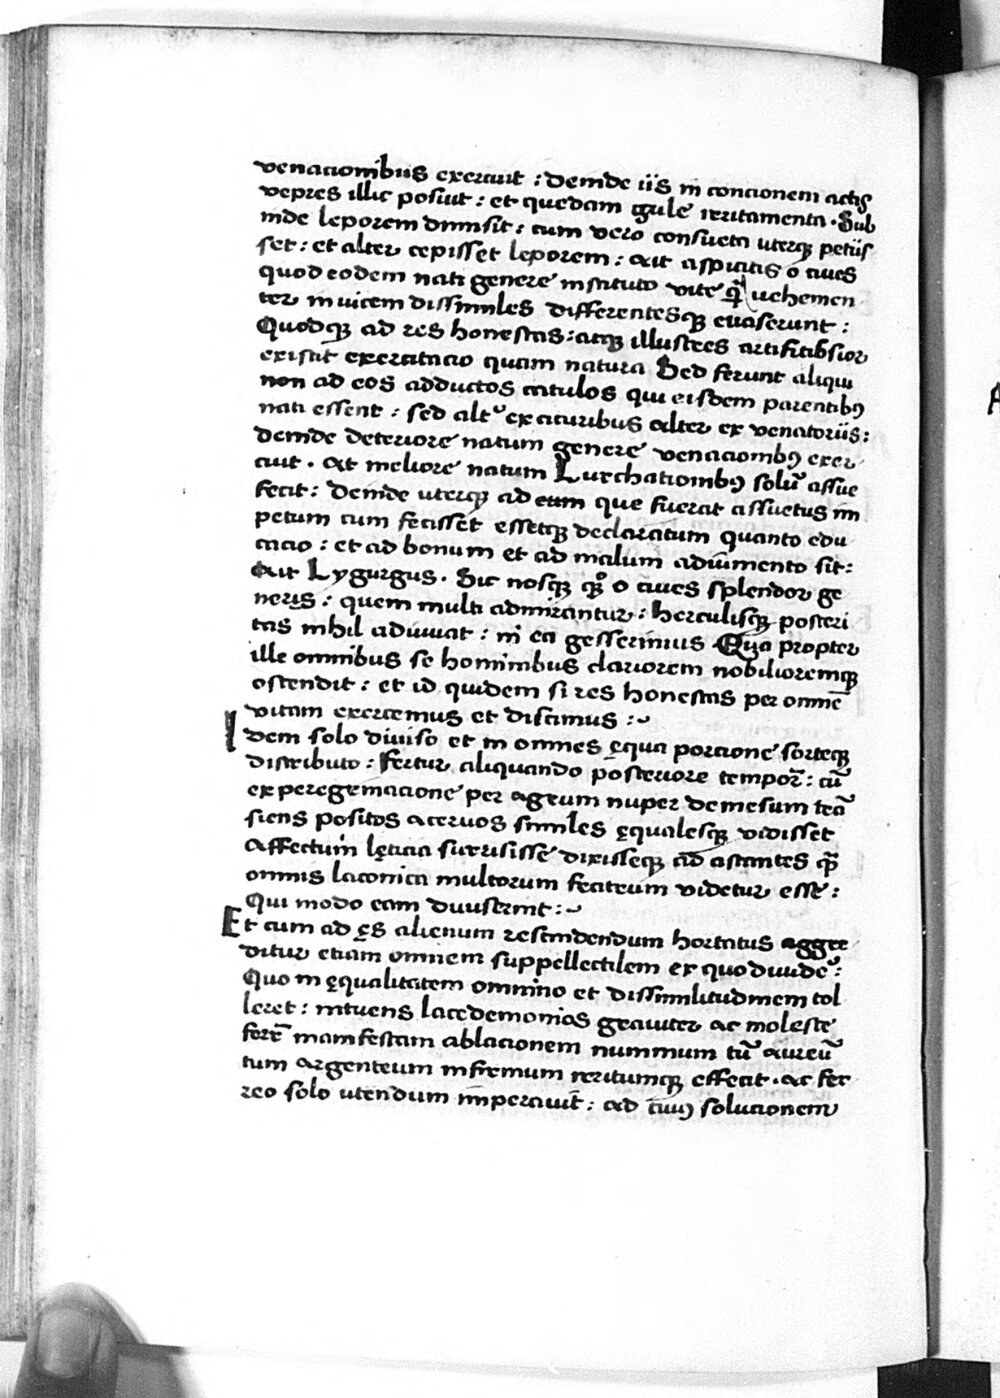 venacionibus exercuit : deinde iis in concionem actis
vepres illic posuit : et quedam gule irritamenta . Sub
inde leporem dimisit : cum vero consueta uterqꝫ petiis
set : et alter cepisset leporem : ait aspicitis o cives
quod eodem nati genere instituto vite qͫ vehemen
ter invicem dissimiles differentesqꝫ evaserunt :
Quodqꝫ ad res honestas : atqꝫ illustres artificibsior
existit exercitacio quam natura Sed ferunt aliqui
non ad eos adductos catulos qui eisdem parentibꝰ
nati essent : sed altˀ ex acuribus alter ex venatoriis :
deinde deteriore natum genere venacionibꝰ exer
cuit . At meliore natum Lurchationibꝰ solū assue
fecit : deinde uterqꝫ ad eum que fuerat assuetus im
petum cum fecisset essetqꝫ declaratum quanto edu
cacio : et ad bonum et ad malum adiumento sit :
Ait Lygurgus . Sic nosqꝫ qꝫ o cives splendor ge
neris : quem multi admirantur : herculisqꝫ posteri
tas nihil adiuvat : ni ea gesserimus Qua propter
ille omnibus se hominibus clariorem nobilioremqꝫ
ostendit : et id quidem si res honestas per omnē
vitam exercemus et discimus :~
Idem solo diviso et in omnes ęqua porcione sorteqꝫ
distributo : fertur aliquando posteriore tempor̄ : cū
ex peregrinacione per agrum nuper demesum trā
siens positos acervos similes ęqualesqꝫ vidisset
Affectum lęticia surrisisse dixisseqꝫ ad astantes qͫ
omnis laconica multorum fratrum videtur esse :
Qui modo eam diviserint :~
Et cum ad ęs alienum rescindendum hortatus aggre
ditur etiam omnem suppellectilem ex quo dividē :
Quo inęqualitatem omnino et dissimilitudinem tol
leret : intuens lacedemonios graviter ac moleste
ferr̄ manifestam ablacionem nummum tū aureū
tum argenteum infirmum irritumqꝫ effecit . ac fer
reo solo utendum imperavit : ad cuiꝰ solucionem